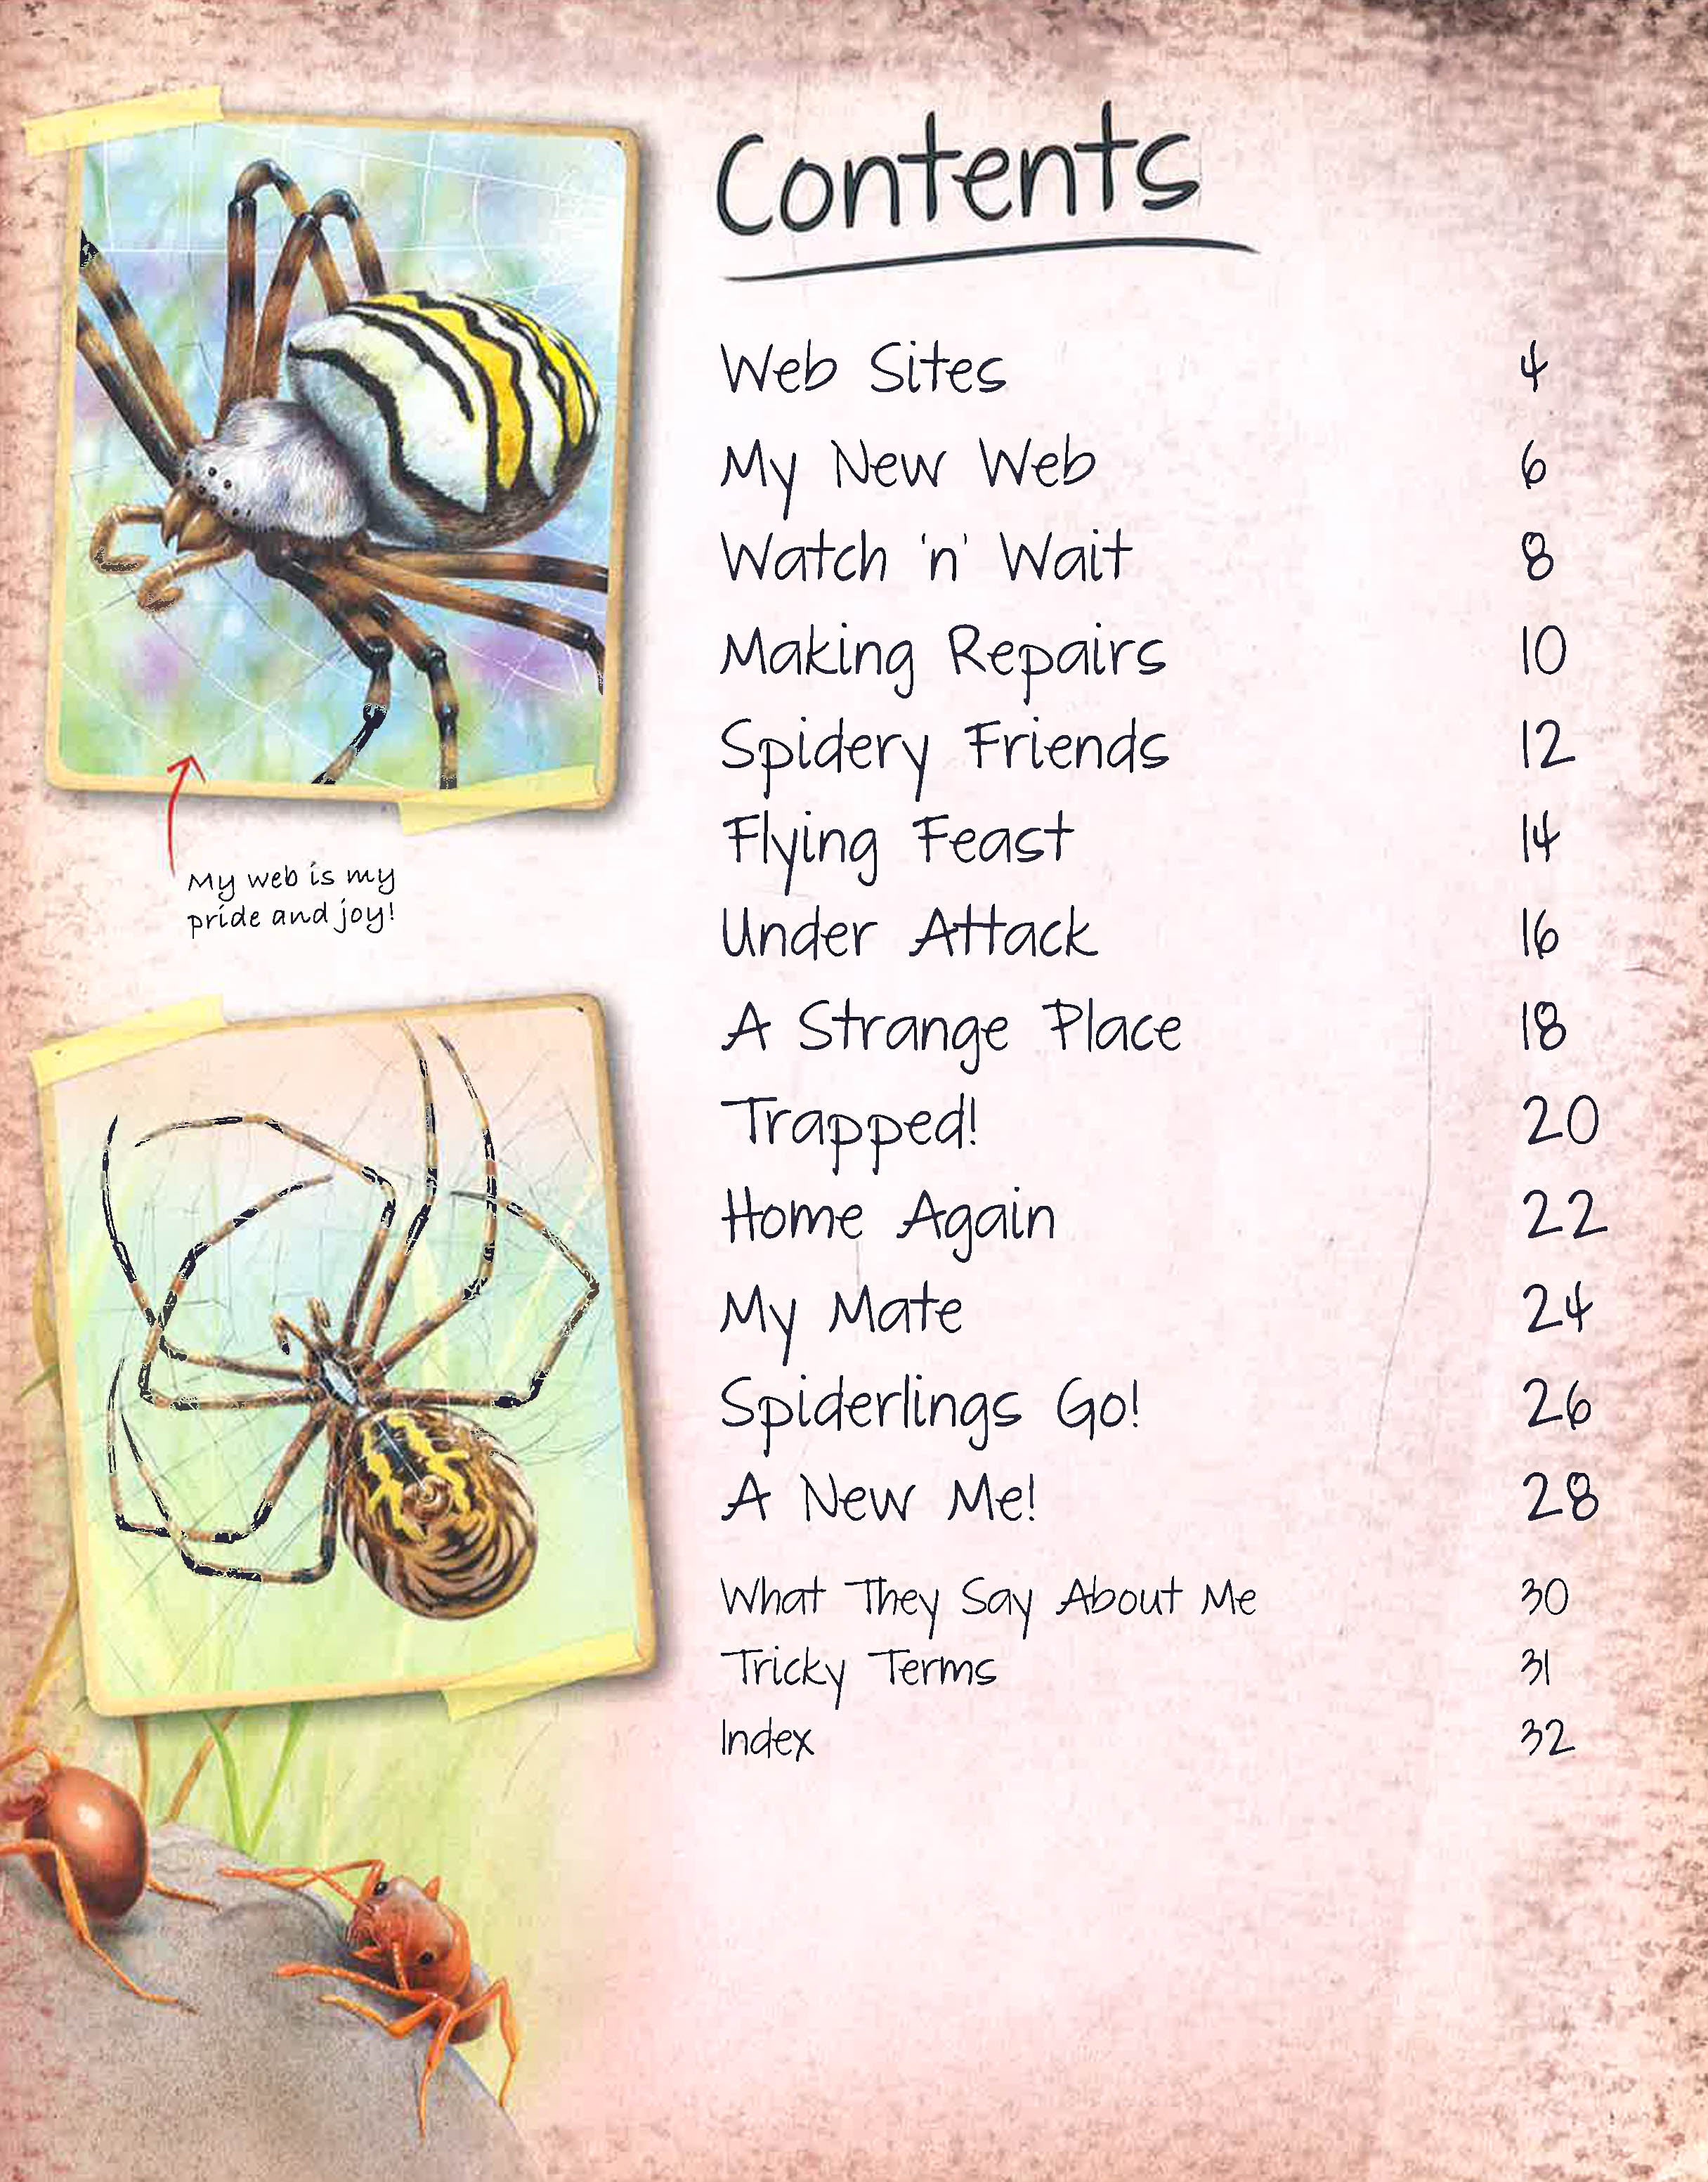 Contents
Web Sites 4
My New Web 6
Watch 'n' Wait 8
Making Repairs 10
Spidery Friends 12
Flying Feast 14
Under Attack 16
A Strange Place 18
Trapped! 20
Home Again 22
My Mate 24
Spiderlings Go! 26
A New Me! 28
What They Say About Me 30
Tricky Terms 31
Index 32
My web is my
pride and joy!